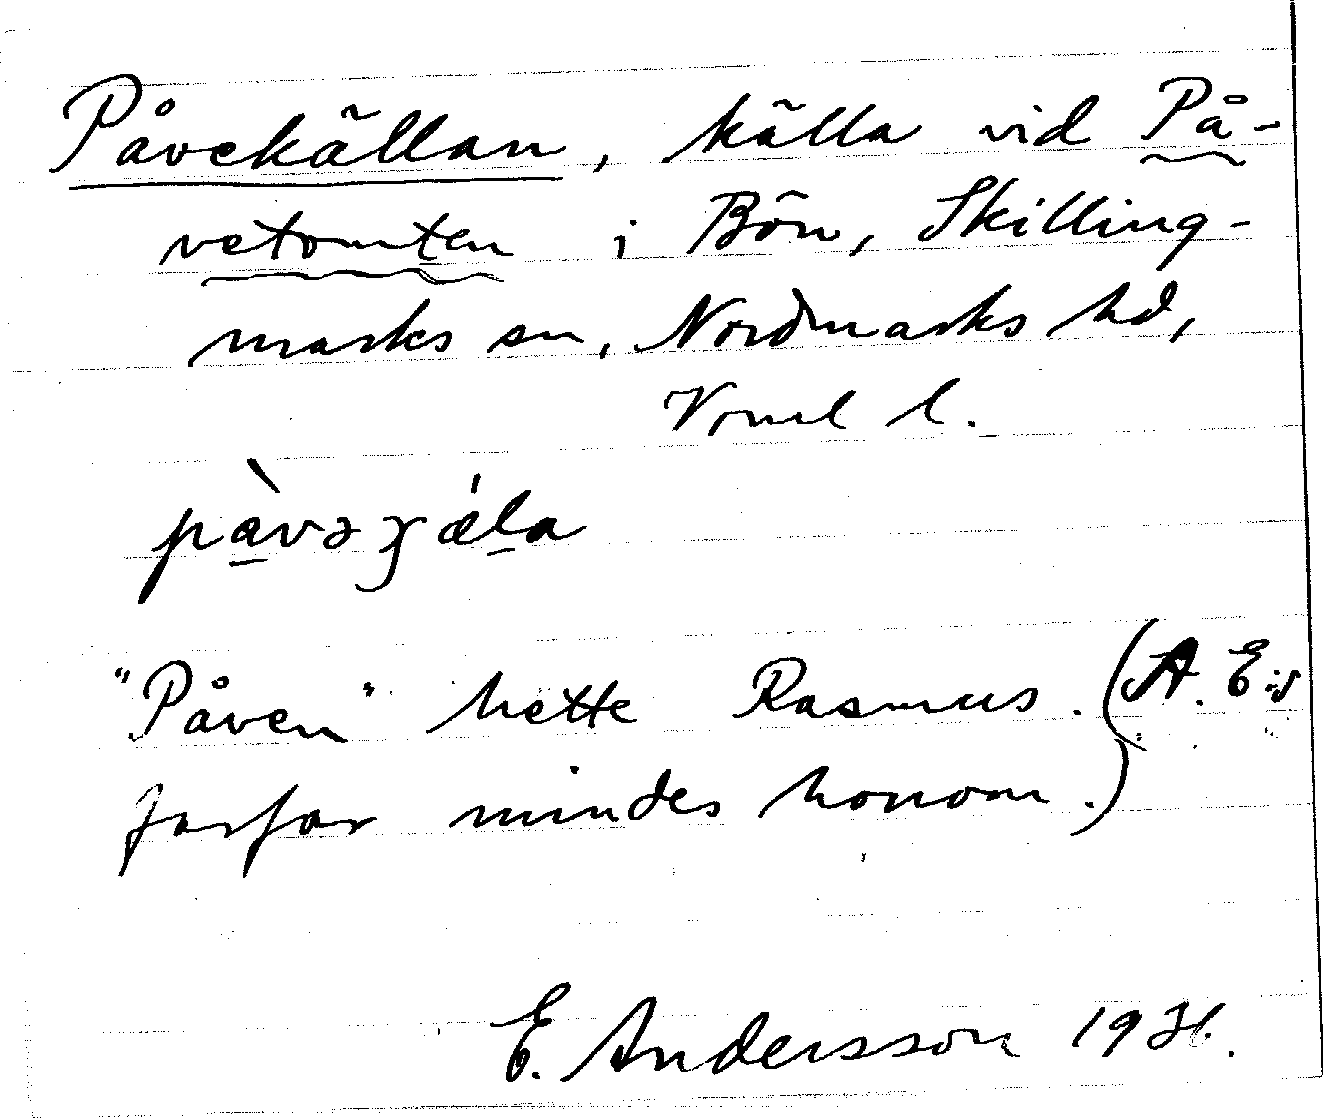 Påvekällan, källa vid På-
vetomten i Bön, Skilling-
marks sn, Nordmarks hd,
Vrml l.
"Påven" hette Rasmus. (A. E:s
farfar mindes honom.)
E. Andersson 193